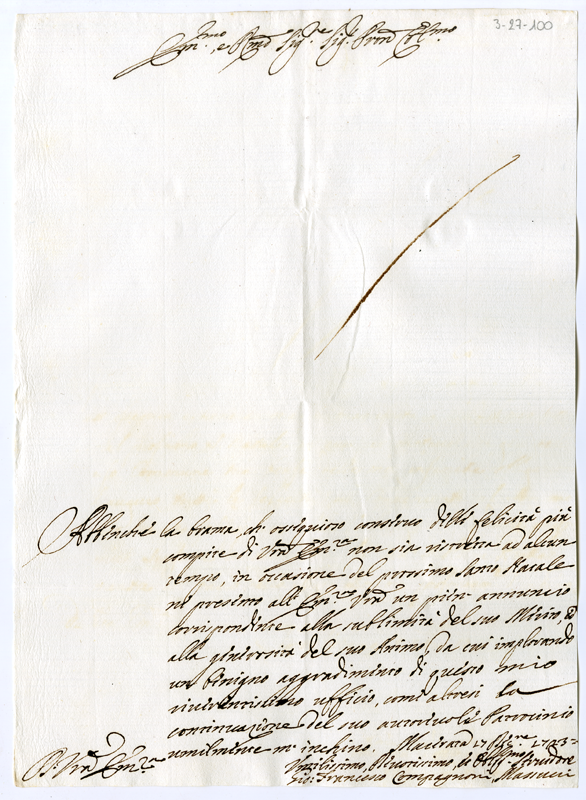 3-27-100
Em.mo, e Rmo Sig.e Sig.r Pron Colmo.
Abbenché la brama, ch' ossequioso conservo delle felicità più
compite di Vra Em.za non sia ristretta ad alcun
tempo, in occasione del prossimo Santo Natale
ne presento all' Em.za Vra un pien annuncio
corrispondente alla sublimità del suo Merito, ed
alla generosità del suo Animo, da cui implorando
un benigno aggradimento di questo mio
riverentissimo ufficio, come altresì la
continuazione del suo autorevole Patrocinio
umilmente m' inchino. Macerata 17
D. Vra Em.za
Umilissimo, Divotissimo, ed Obbl. Servitore
Gio: Francesco Compagnoni Marucci